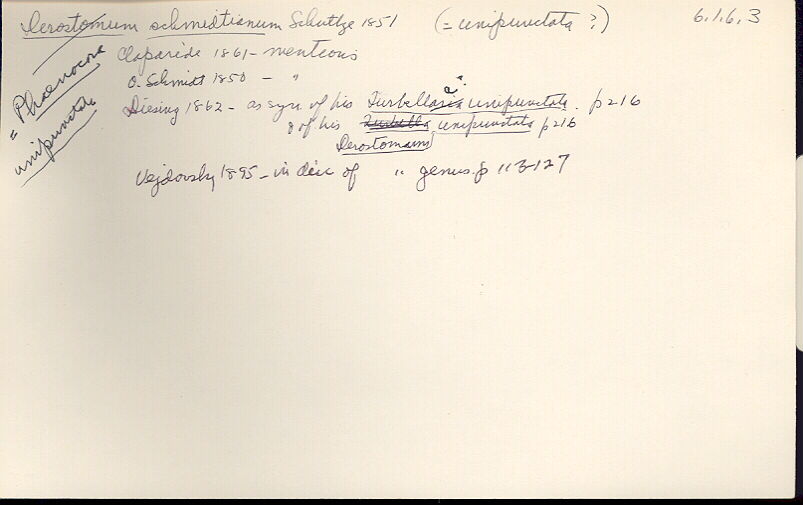 Derostomum schmidtianum Schultze 1851 (= unipunctata ?) 6.1.6.3
" Phaenocora
unipunctata
Claparède 1861 - mentions
O. Schmidt 1850 - "
Diesing 1862 - as syn. of his Turbellaria unipunctata. p 216
& of his Turbella unipunctata p 216
Derostomum
Vejdovsky 1895 - in disc of " genus. p 113-127